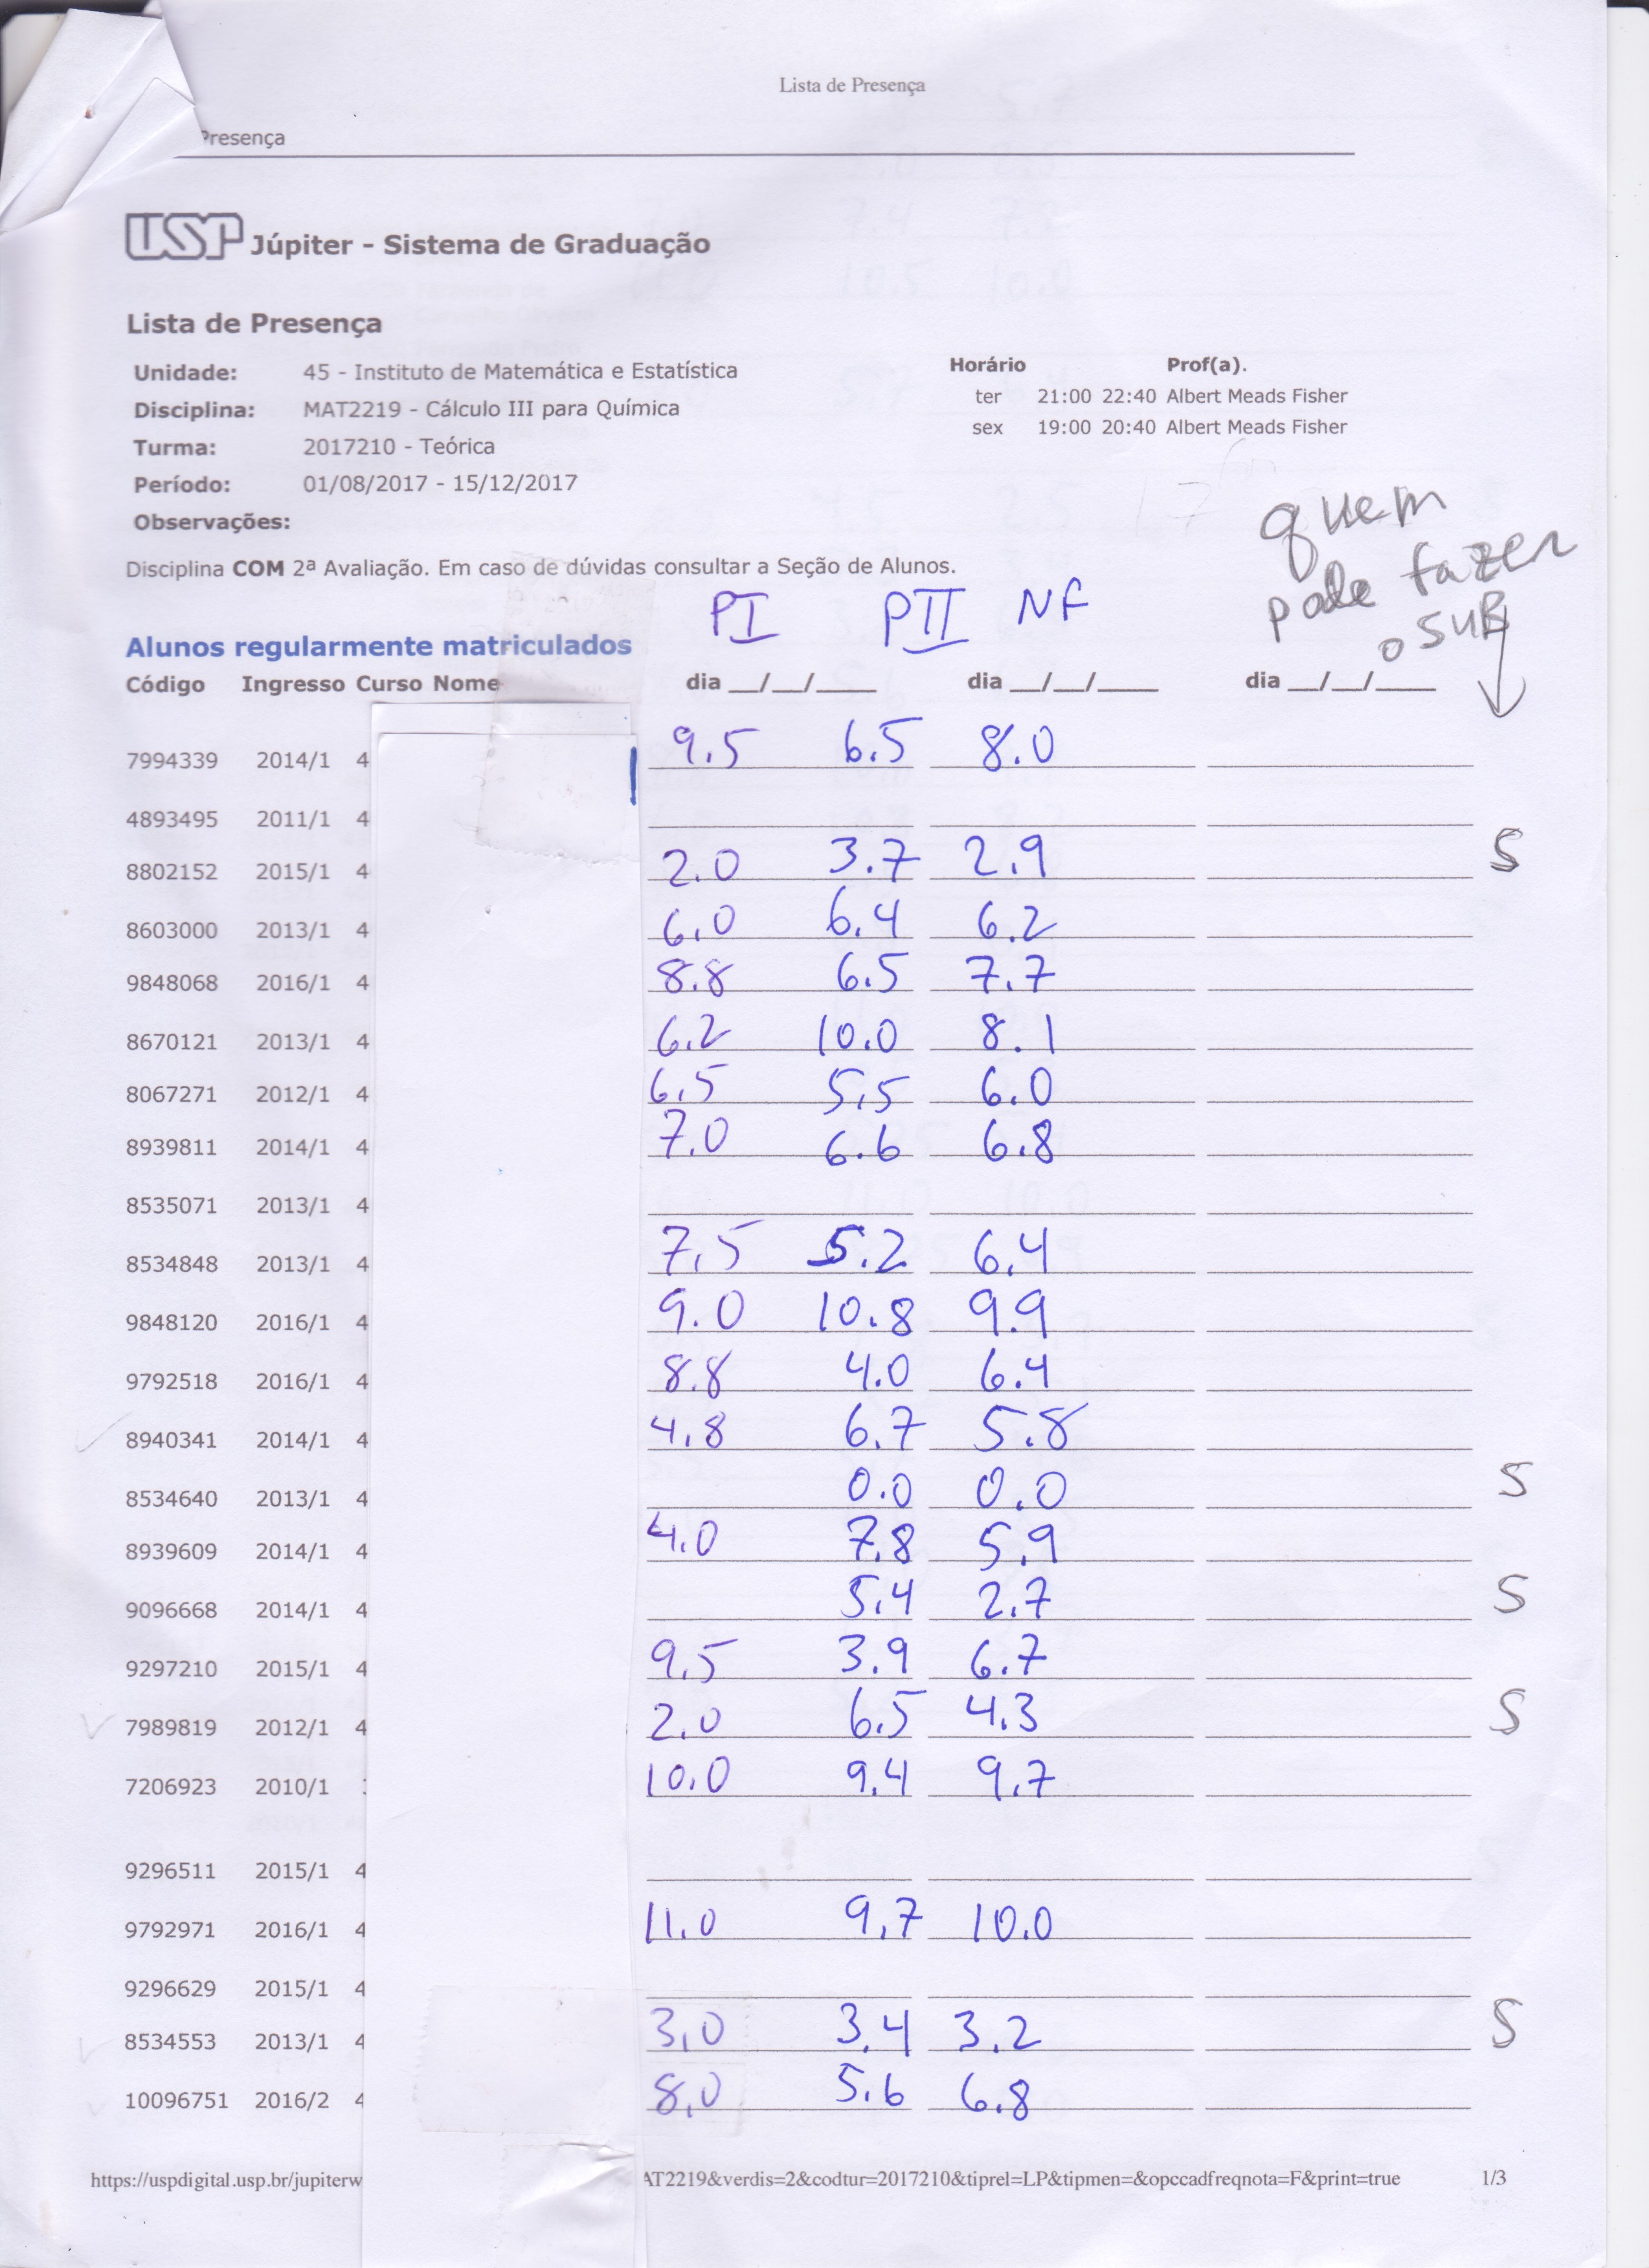 Lista de Presença
Presença
USP Júpiter - Sistema de Graduação
Lista de Presença
Unidade: 45 - Instituto de Matemática e Estatística
Disciplina: MAT2219 - Cálculo III para Química
Turma: 2017210 - Teórica
Período: 01/08/2017 - 15/12/2017
Observações:
Horário Prof(a).
ter 21:00 22:40 Albert Meads Fisher
sex 19:00 20:40 Albert Meads Fisher
Disciplina COM 2ª Avaliação. Em caso de dúvidas consultar a Seção de Alunos.
quem
pode fazer
o SUB
PI PII NF
Alunos regularmente matriculados
Código Ingresso Curso Nome dia __/__/____ dia __/__/____ dia __/__/____
7994339 2014/1 4 9.5 6.5 8.0
4893495 2011/1 4
8802152 2015/1 4 2.0 3.7 2.9 S
8603000 2013/1 4 6.0 6.4 6.2
9848068 2016/1 4 8.8 6.5 7.7
8670121 2013/1 4 6.2 10.0 8.1
8067271 2012/1 4 6.5 5.5 6.0
8939811 2014/1 4 7.0 6.6 6.8
8535071 2013/1 4
8534848 2013/1 4 7.5 5.2 6.4
9848120 2016/1 4 9.0 10.8 9.9
9792518 2016/1 4 8.8 4.0 6.4
8940341 2014/1 4 4.8 6.7 5.8
8534640 2013/1 4 0.0 0.0 S
8939609 2014/1 4 4.0 7.8 5.9
9096668 2014/1 4 5.4 2.7 S
9297210 2015/1 4 9.5 3.9 6.7
7989819 2012/1 4 2.0 6.5 4.3 S
7206923 2010/1 10.0 9.4 9.7
9296511 2015/1 4
9792971 2016/1 4 11.0 9.7 10.0
9296629 2015/1 4
8534553 2013/1 4 3.0 3.4 3.2 S
10096751 2016/2 4 8.0 5.6 6.8
https://uspdigital.usp.br/jupiterw AT2219&verdis=2&codtur=2017210&tiprel=LP&tipmen=&opccadfreqnota=F&print=true 1/3